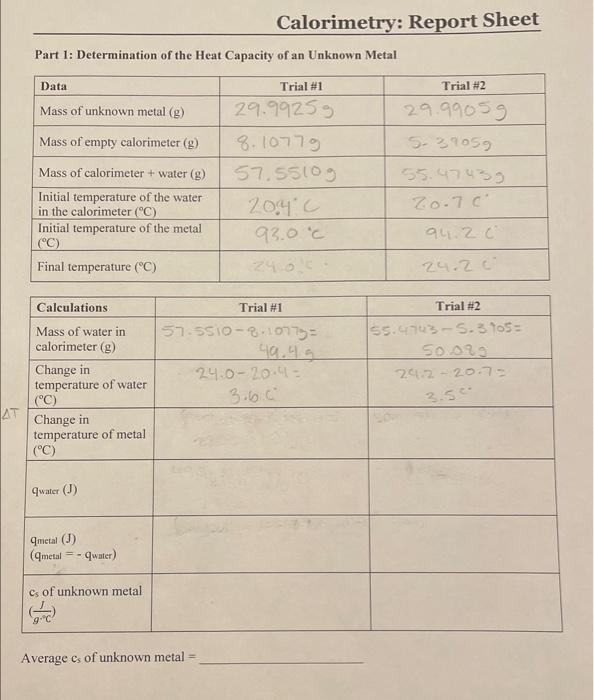 Calorimetry: Report Sheet
Part 1: Determination of the Heat Capacity of an Unknown Metal
Data Trial #1 Trial #2
Mass of unknown metal (g) 29.9925g 29.9905g
Mass of empty calorimeter (g) 8.1077g 5.3905g
Mass of calorimeter + water (g) 57.5510g 55.4743g
Initial temperature of the water
in the calorimeter (°C) 20.4°C 20.7 C°
Initial temperature of the metal
(°C) 93.0 °C 94.2 C°
Final temperature (°C) 24.0°C 24.2 C°
Calculations Trial #1 Trial #2
Mass of water in 57.5510-8.1077g= 55.4743-5.3905=
calorimeter (g) 49.4g 50.08g
Change in 24.0-20.4= 24.2-20.7=
temperature of water
(°C) 3.6 C° 3.5C°
ΔT Change in
temperature of metal
(°C)
qwater (J)
qmetal (J)
(qmetal = - qwater)
cs of unknown metal
(J/g·°C)
Average cs of unknown metal =